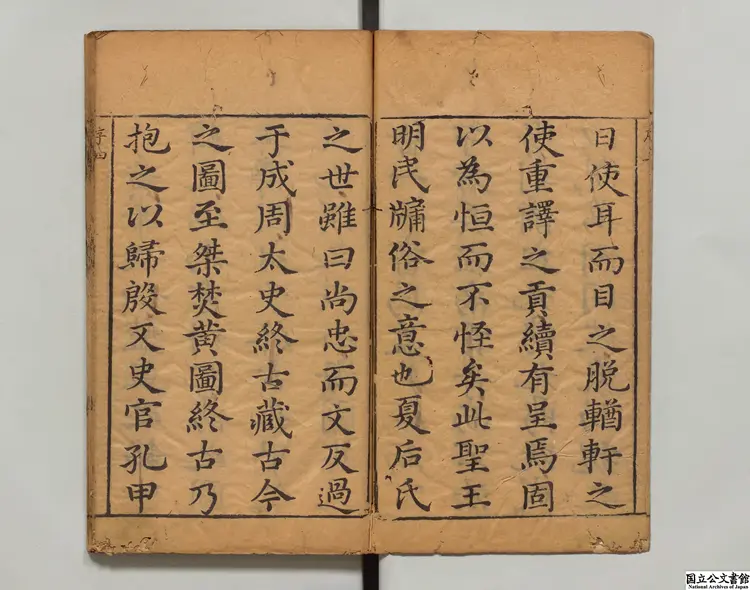 曰使耳而目之脫輶軒之
使重譯之貢續有呈焉固
以為恒而不怪矣此聖王
明民牗俗之意也夏后氏
之世雖曰尚忠而文反過
于成周太史終古藏古今
之圖至桀焚黃圖終古乃
抱之以歸殷又史官孔甲
序四
国立公文書館
National Archives of Japan